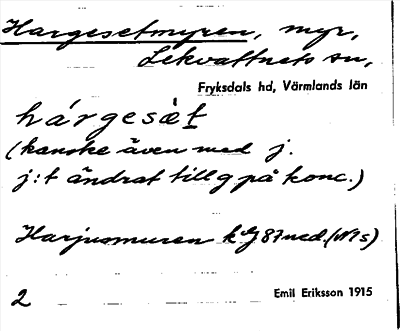 Hargesetmyren, myr,
Lekvattnets sn,
Fryksdals hd, Värmlands län
hárgesæ̀t
(kanske även med j.
j:t ändrat till g på konc.)
Harjusmuren k G 87 ned. (N1s)
2
Emil Eriksson 1915